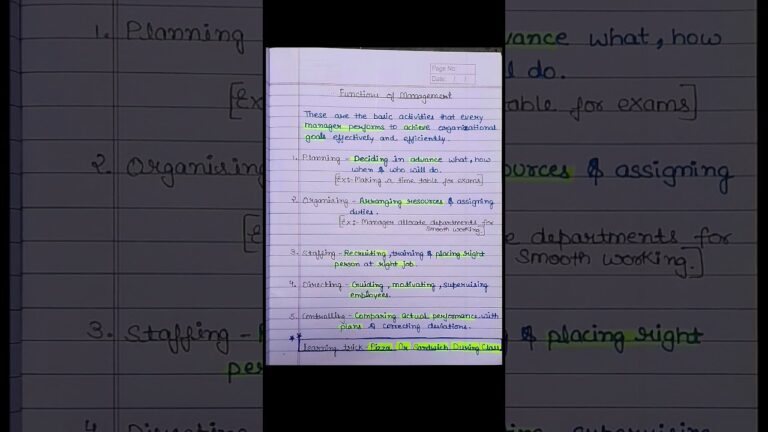 Page No.
Date: / /
Functions of Management
These are the basic activities that every
manager performs to achieve organizational
goals effectively and efficiently.
1. Planning - Deciding in advance what, how
when & who will do.
[Ex:- Making a time table for exams]
2. Organising - Arranging resources & assigning
duties.
[Ex:- Manager allocate departments for
smooth working.]
3. Staffing - Recruiting, training & placing right
person at right job.
4. Directing - Guiding, motivating, supervising
employees.
5. Controlling - Comparing actual performance with
plans & correcting deviations.
Learning trick - Pizza Or Sandwich During Class
1. Planning
vance what, how
do.
[Ex
table for exams]
2. Organising
ources & assigning
e departments for
smooth working.]
3. Staffing -
placing right
per